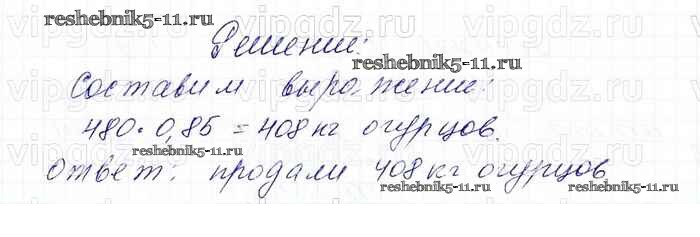 reshebnik5-11.ru
Решение:
reshebnik5-11.ru
Составим выражение:
480 · 0,85 = 408 кг огурцов.
reshebnik5-11.ru
Ответ: продали 408 кг огурцов
reshebnik5-11.ru reshebnik5-11.ru